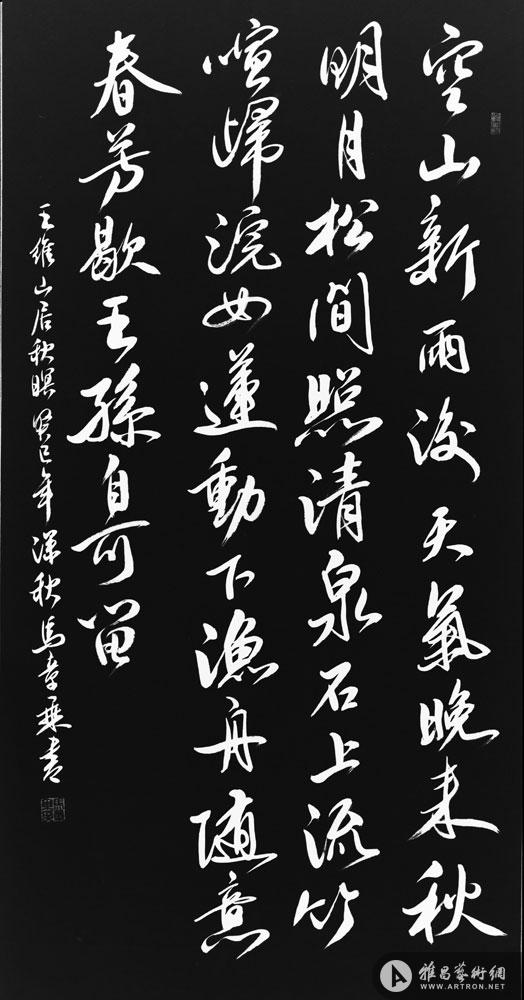 空山新雨後天氣晚来秋
明月松間照清泉石上流竹
喧歸浣女蓮動下漁舟随意
春芳歇王孫自可留
王維山居秋暝癸巳年深秋馬章乘書
雅昌藝術網
WWW.ARTRON.NET